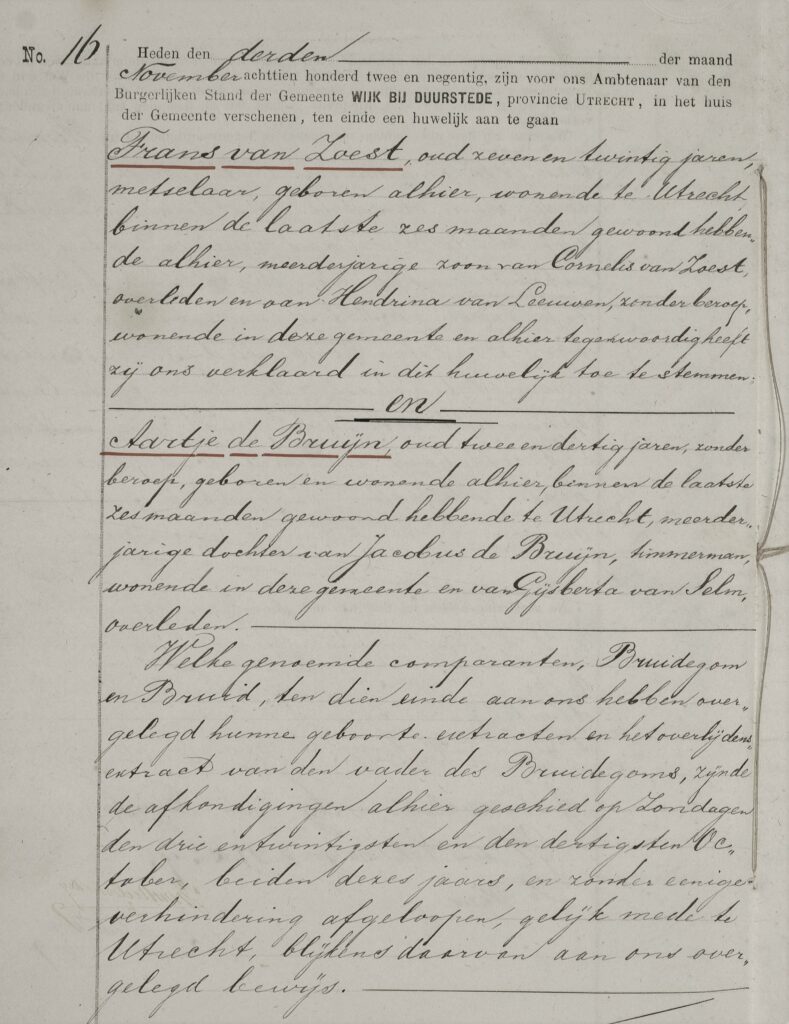 No. 16
Heden den derden der maand
November achttien honderd twee en negentig, zijn voor ons Ambtenaar van den
Burgerlijken Stand der Gemeente WIJK BIJ DUURSTEDE, provincie UTRECHT, in het huis
der Gemeente verschenen, ten einde een huwelijk aan te gaan
Frans van Zoest, oud zeven en twintig jaren,
metselaar, geboren alhier, wonende te Utrecht
binnen de laatste zes maanden gewoond hebben-
de alhier, meerderjarige zoon van Cornelis van Zoest,
overleden en van Hendrina van Leeuwen, zonder beroep,
wonende in deze gemeente en alhier tegenwoordig heeft
zij ons verklaard in dit huwelijk toe te stemmen;
en
Aartje de Bruijn, oud twee en dertig jaren, zonder
beroep, geboren en wonende alhier, binnen de laatste
zes maanden gewoond hebbende te Utrecht, meerder-
jarige dochter van Jacobus de Bruijn, timmerman,
wonende in deze gemeente en van Gijsberta van Selm,
overleden.
Welke genoemde comparanten, Bruidegom
en Bruid, ten dien einde aan ons hebben over-
gelegd hunne geboorte-extracten en het overlijdens-
extract van den vader des Bruidegoms, zijnde
de afkondigingen alhier geschied op Zondagen
den drie en twintigsten en den dertigsten Oc-
tober, beiden dezes jaars, en zonder eenige
verhindering afgeloopen, gelijk mede te
Utrecht, blijkens daarvan aan ons over-
gelegd bewijs.